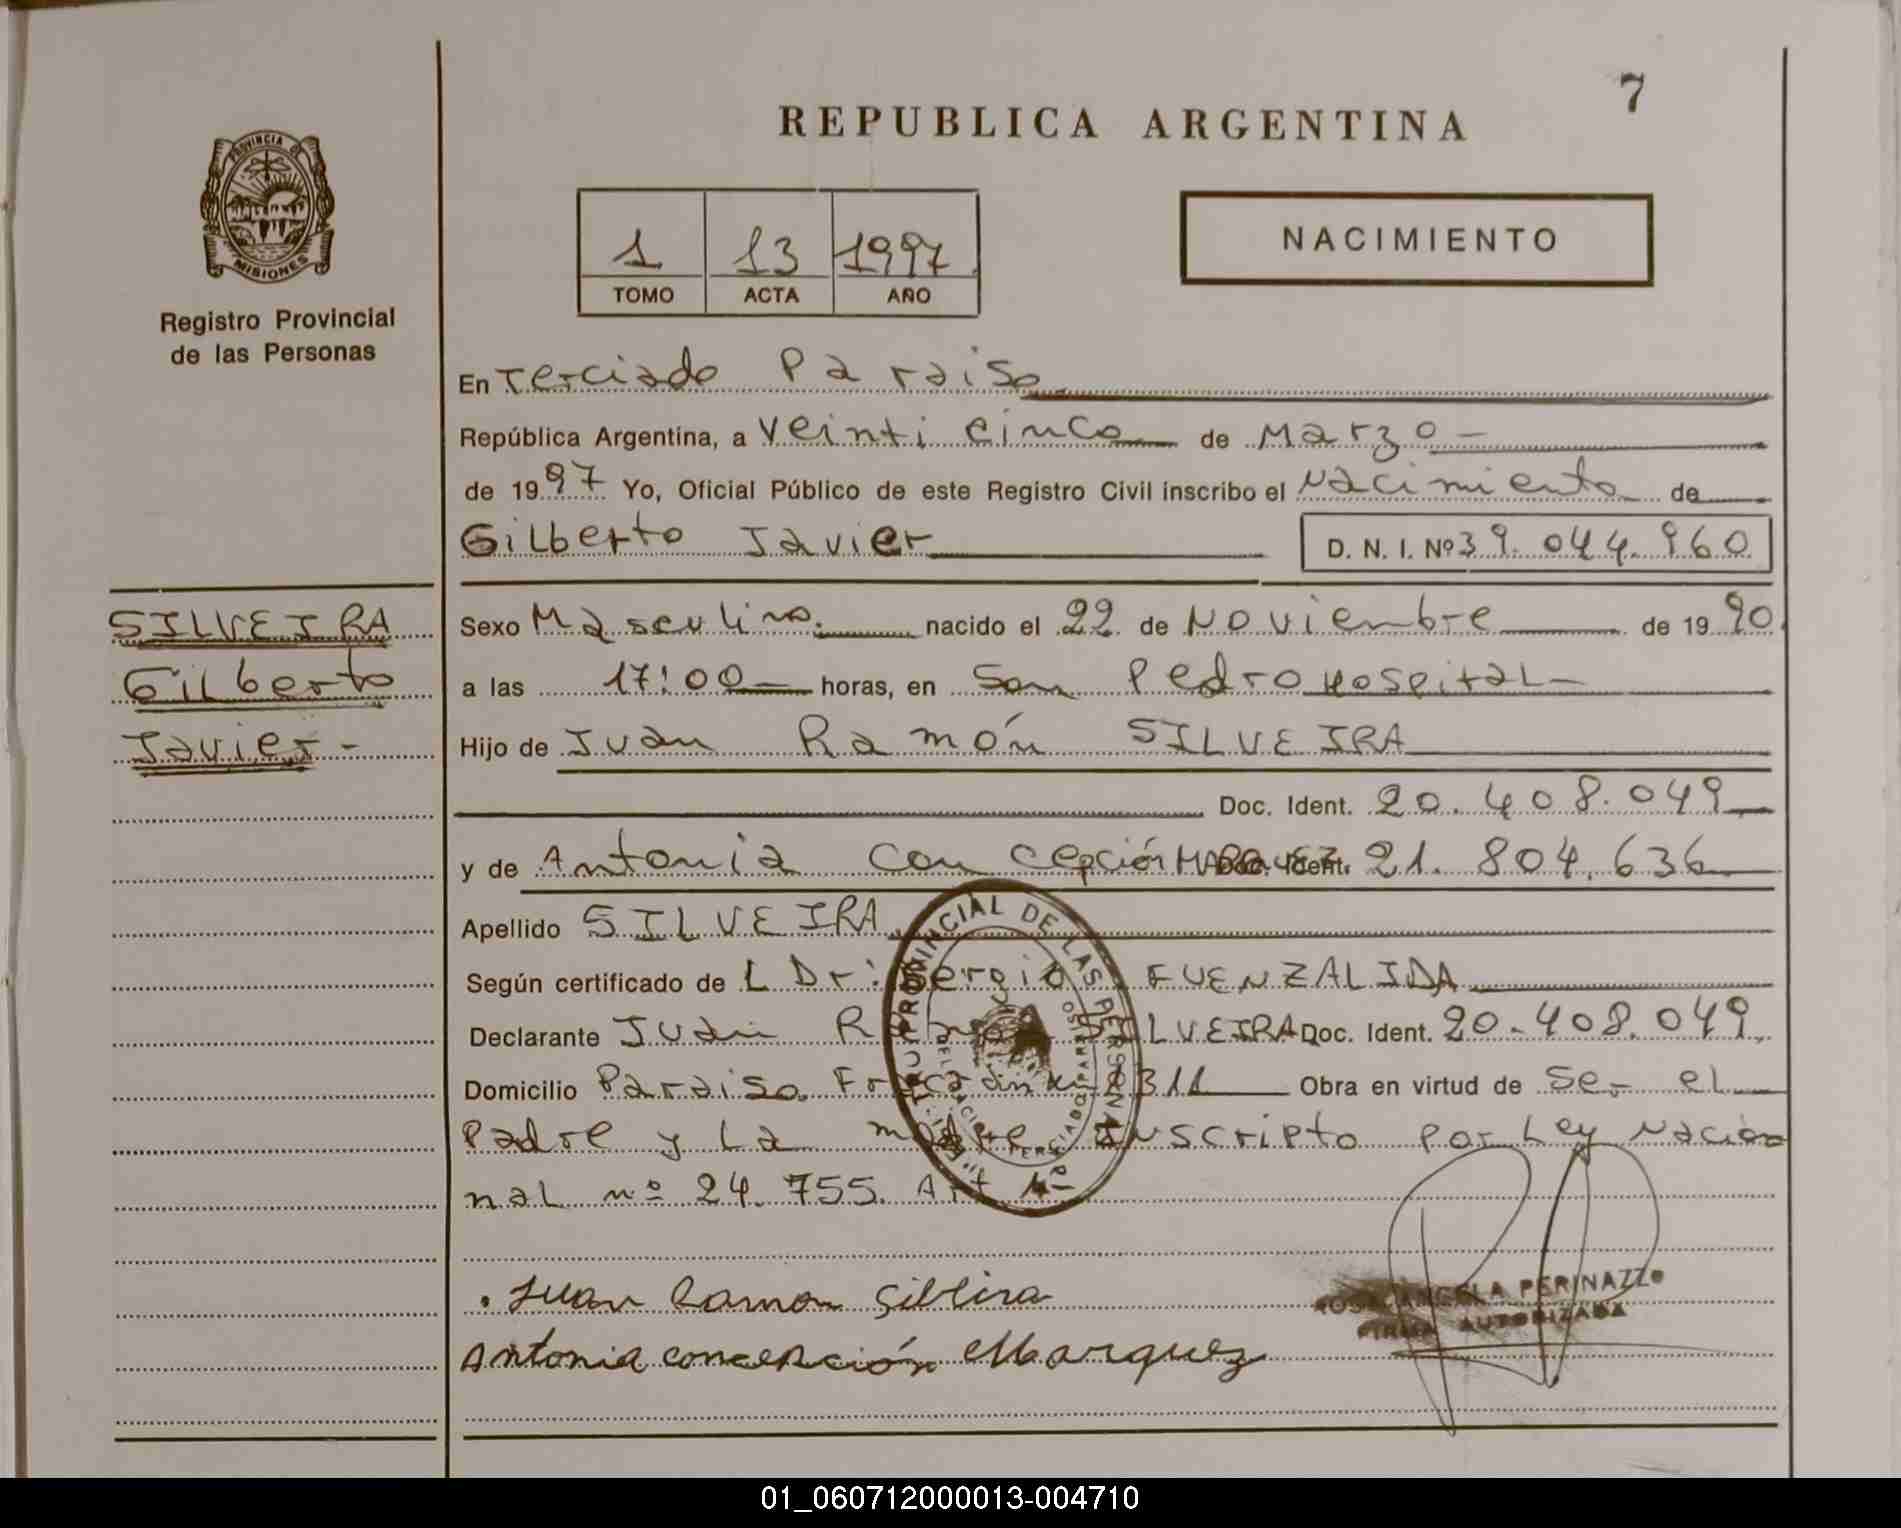 7
REPUBLICA ARGENTINA
PROVINCIA DE
MISIONES
Registro Provincial
de las Personas
1 13 1997
TOMO ACTA AÑO
NACIMIENTO
En Terciado Paraiso
República Argentina, a Veinti cinco de Marzo
de 1997 Yo, Oficial Público de este Registro Civil inscribo el Nacimiento de
Gilberto Javier D. N. I. Nº 39.044.960
SILVEIRA
Gilberto
Javier-
Sexo Masculino. nacido el 22 de Noviembre de 1990
a las 17:00 horas, en San Pedro Hospital
Hijo de Juan Ramón SILVEIRA
Doc. Ident. 20.408.049
y de Antonia Concepción MARQUEZ Doc. Ident. 21.804.636
Apellido SILVEIRA
Según certificado de L Dr: Sergio FUENZALIDA
Declarante Juan Ramón SILVEIRA Doc. Ident. 20.408.049
Domicilio Paraiso 311 Obra en virtud de Ser el
Padre y La madre Inscripto Por Ley Nacion
nal nº 24.755. Art 4º
PROVINCIAL DE LAS PERSONAS
Juan Ramon Silbeira
Antonia concepción Marquez
ROSA ANGELA PERINAZZO
FIRMA AUTORIZADA
01_060712000013-004710